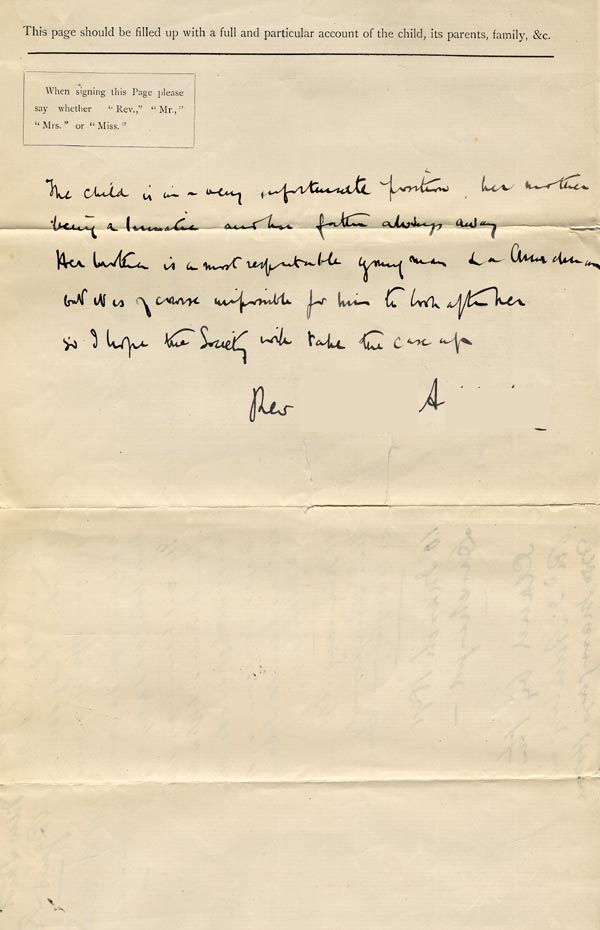 This page should be filled up with a full and particular account of the child, its parents, family, &c.
When signing this Page please
say whether "Rev.," "Mr.,"
"Mrs." or "Miss."
The child is in a very unfortunate position, her mother
being a lunatic and her father always away
Her brother is a most respectable young man & a Churchman
but it is of course impossible for him to look after her
so I hope the Society will take the case up
Rev A